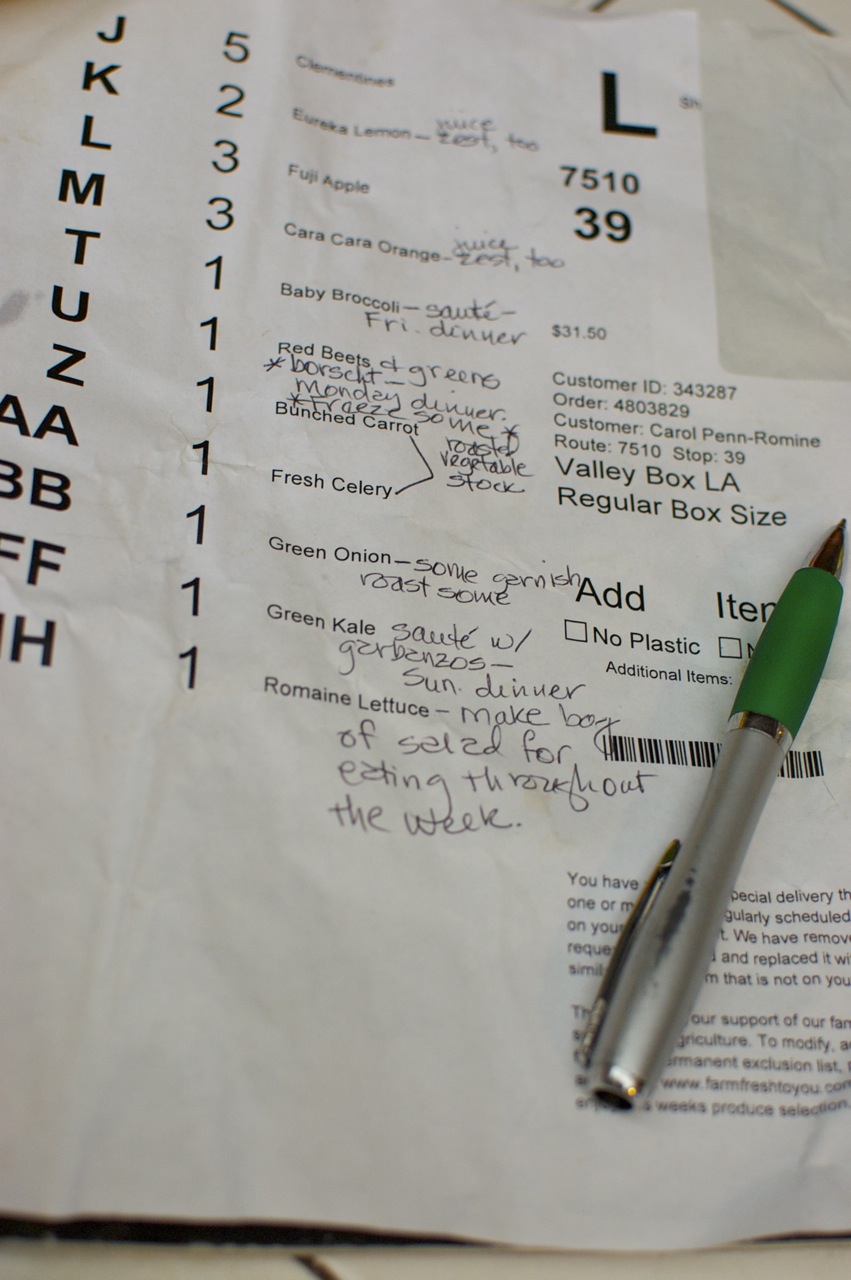 J 5 Clementines
K 2 Eureka Lemon — juice
zest, too
L 3 Fuji Apple
M 3 Cara Cara Orange - juice
zest, too
T 1 Baby Broccoli — sauté -
Fri. dinner
U 1 Red Beets & greens
* borscht -
Monday dinner.
* freeze some *
Z 1 Bunched Carrot
AA 1 Fresh Celery
roasted
vegetable
stock
BB 1 Green Onion — some garnish
roast some
FF 1 Green Kale sauté w/
garbanzos -
Sun. dinner
HH 1 Romaine Lettuce - make
of salad for
eating throughout
the week.
L
Sh
7510
39
$31.50
Customer ID: 343287
Order: 4803829
Customer: Carol Penn-Romine
Route: 7510 Stop: 39
Valley Box LA
Regular Box Size
Add Iter
No Plastic
Additional Items:
You have pecial delivery th
one or m gularly scheduled
on your t. We have remov
reque and replaced it wi
simil m that is not on you
Th our support of our far
griculture. To modify, a
rmanent exclusion list,
www.farmfreshtoyou.com
weeks produce selection.